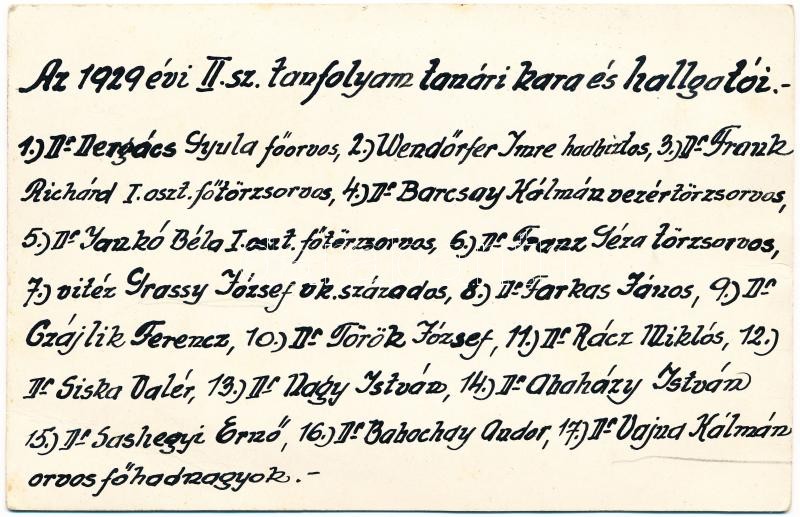 Az 1929 évi II. sz. tanfolyam tanári kara és hallgatói.-
1.) Dr Dergács Gyula főorvos, 2.) Wendőrfer Imre hadbiztos, 3.) Dr Frank
Richárd I. oszt. főtörzsorvos, 4.) Dr Barcsay Kálmán vezértörzsorvos,
5.) Dr Jankó Béla I. oszt. főtörzsorvos, 6.) Dr Franz Géza törzsorvos,
7.) vitéz Grassy József vk. százados, 8.) Dr Farkas János, 9.) Dr
Czájlik Ferencz, 10.) Dr Török József, 11.) Dr Rácz Miklós, 12.)
Dr Siska Valér, 13.) Dr Nagy István, 14.) Dr Abaházy István
15.) Dr Sashegyi Ernő, 16.) Dr Babochay Andor, 17.) Dr Vajna Kálmán
orvos főhadnagyok.-